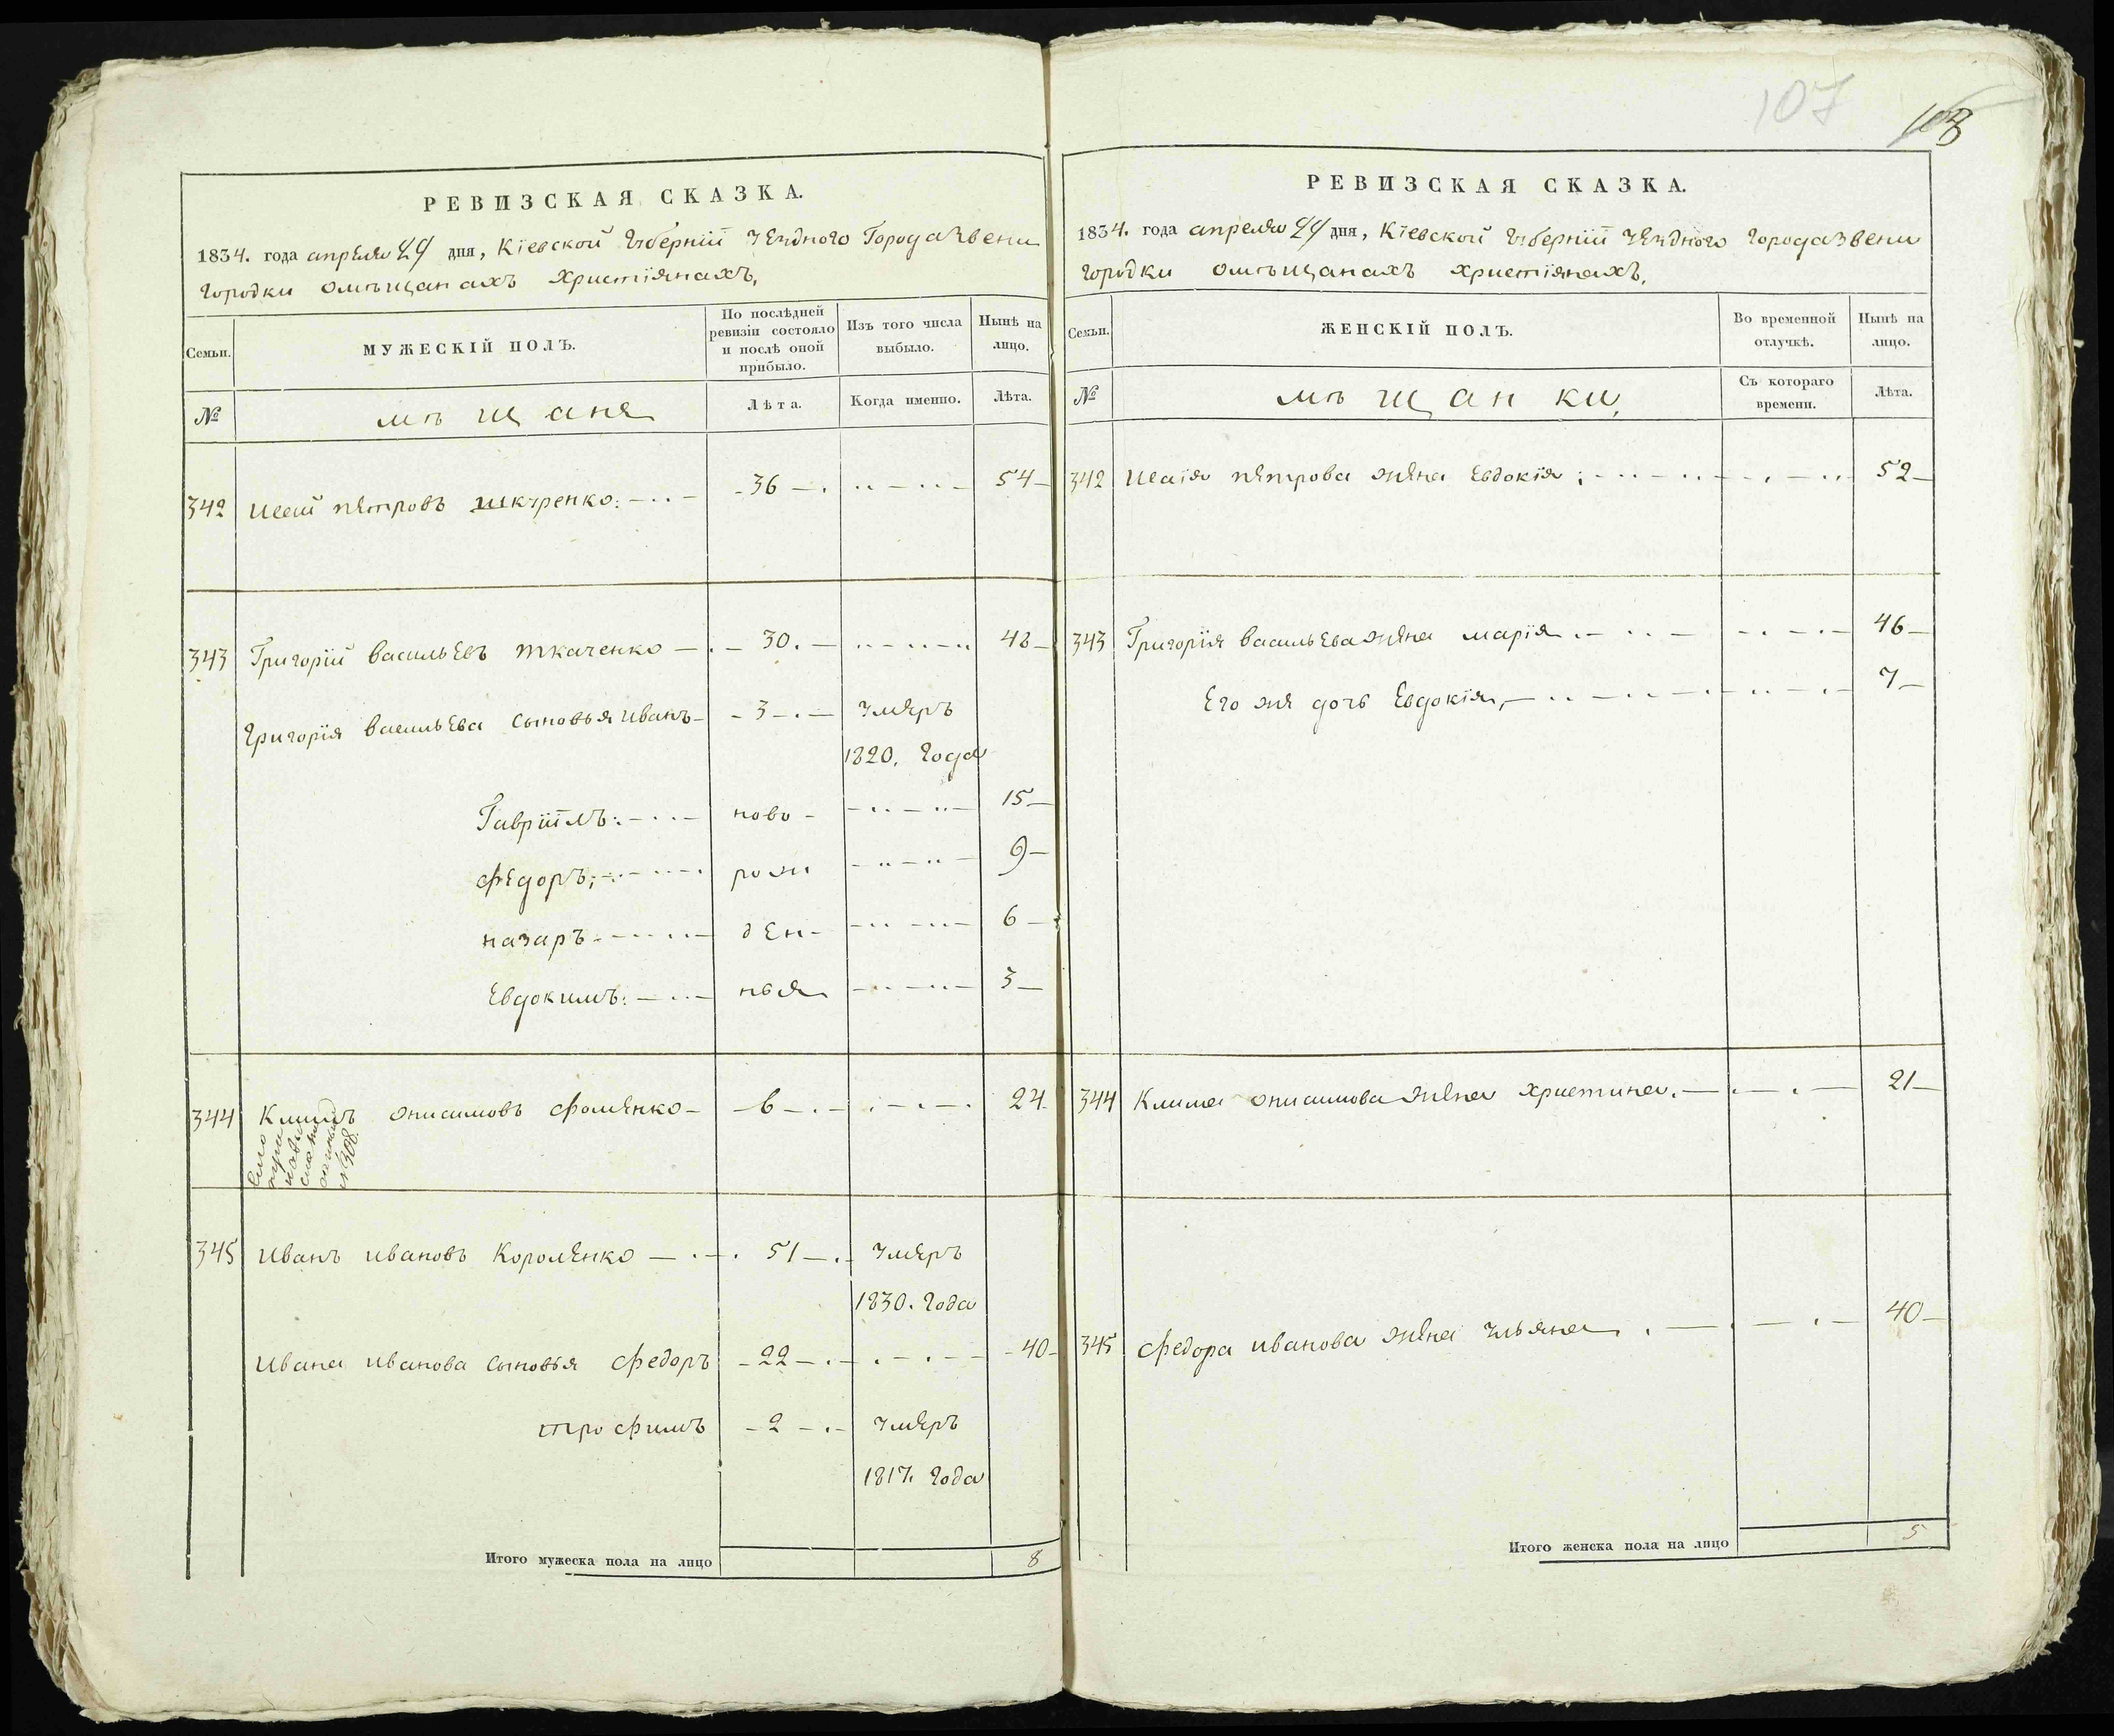 107
РЕВИЗСКАЯ СКАЗКА.
1834. года апреля 24 дня, Кіевской Губерніи уезднаго Города Звени
городки омѣщанахъ христіянахъ,
Семьи.
МУЖЕСКІЙ ПОЛЪ.
По послѣдней ревизіи состояло и послѣ оной прибыло.
Изъ того числа выбыло.
Нынѣ на лицо.
№
мѣщане
Лѣта.
Когда именно.
Лѣта.
342 Исай петровъ шкуренко: 36 54
343 Григорій васильевъ ткаченко 30. 48
Григорія васильева сыновья иванъ 3 умеръ
1820. года
Гавріилъ: ново 15
федоръ; рож 9
назаръ ден 6
Евдокимъ: ныя 3
344 Климъ онисимовъ фоменко 6 24
№ 308.
345 иванъ ивановъ Короленко 51 умеръ
1830. года
ивана иванова сыновья федоръ 22 40
трофимъ 2 умеръ
1817. года
Итого мужеска пола на лицо 8
РЕВИЗСКАЯ СКАЗКА.
1834. года апреля 24 дня, Кіевской Губерніи уезднаго города Звени
городки омѣщанахъ христіянахъ,
Семьи.
ЖЕНСКІЙ ПОЛЪ.
Во временной отлучкѣ.
Нынѣ на лицо.
№
мѣщанки,
Съ котораго времени.
Лѣта.
342 Исаія петрова жена Евдокія; 52
343 Григорія васильева жена марія 46
Его же дочь Евдокія, 7
344 Клима онисимова жена христина. 21
345 федора иванова жена ульяна 40
Итого женска пола на лицо 5